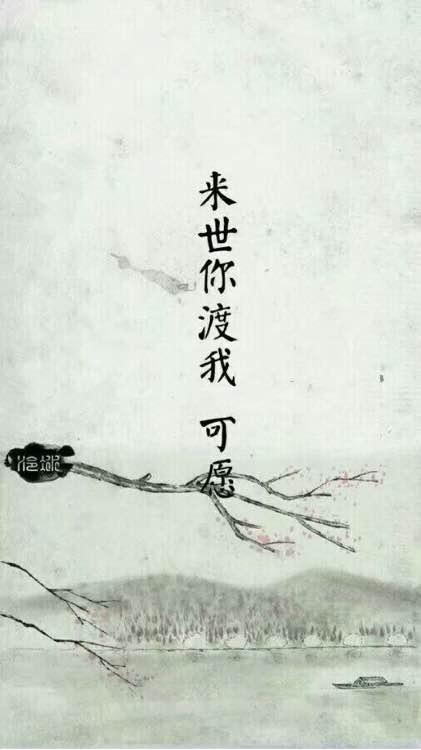 来世你渡我 可愿